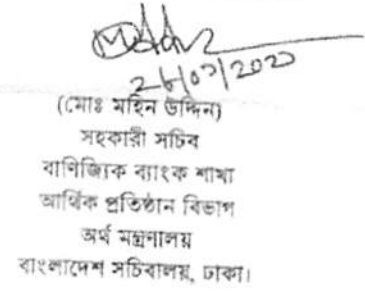 26/07/2020
(মোঃ মহিন উদ্দিন)
সহকারী সচিব
বাণিজ্যিক ব্যাংক শাখা
আর্থিক প্রতিষ্ঠান বিভাগ
অর্থ মন্ত্রণালয়
বাংলাদেশ সচিবালয়, ঢাকা।